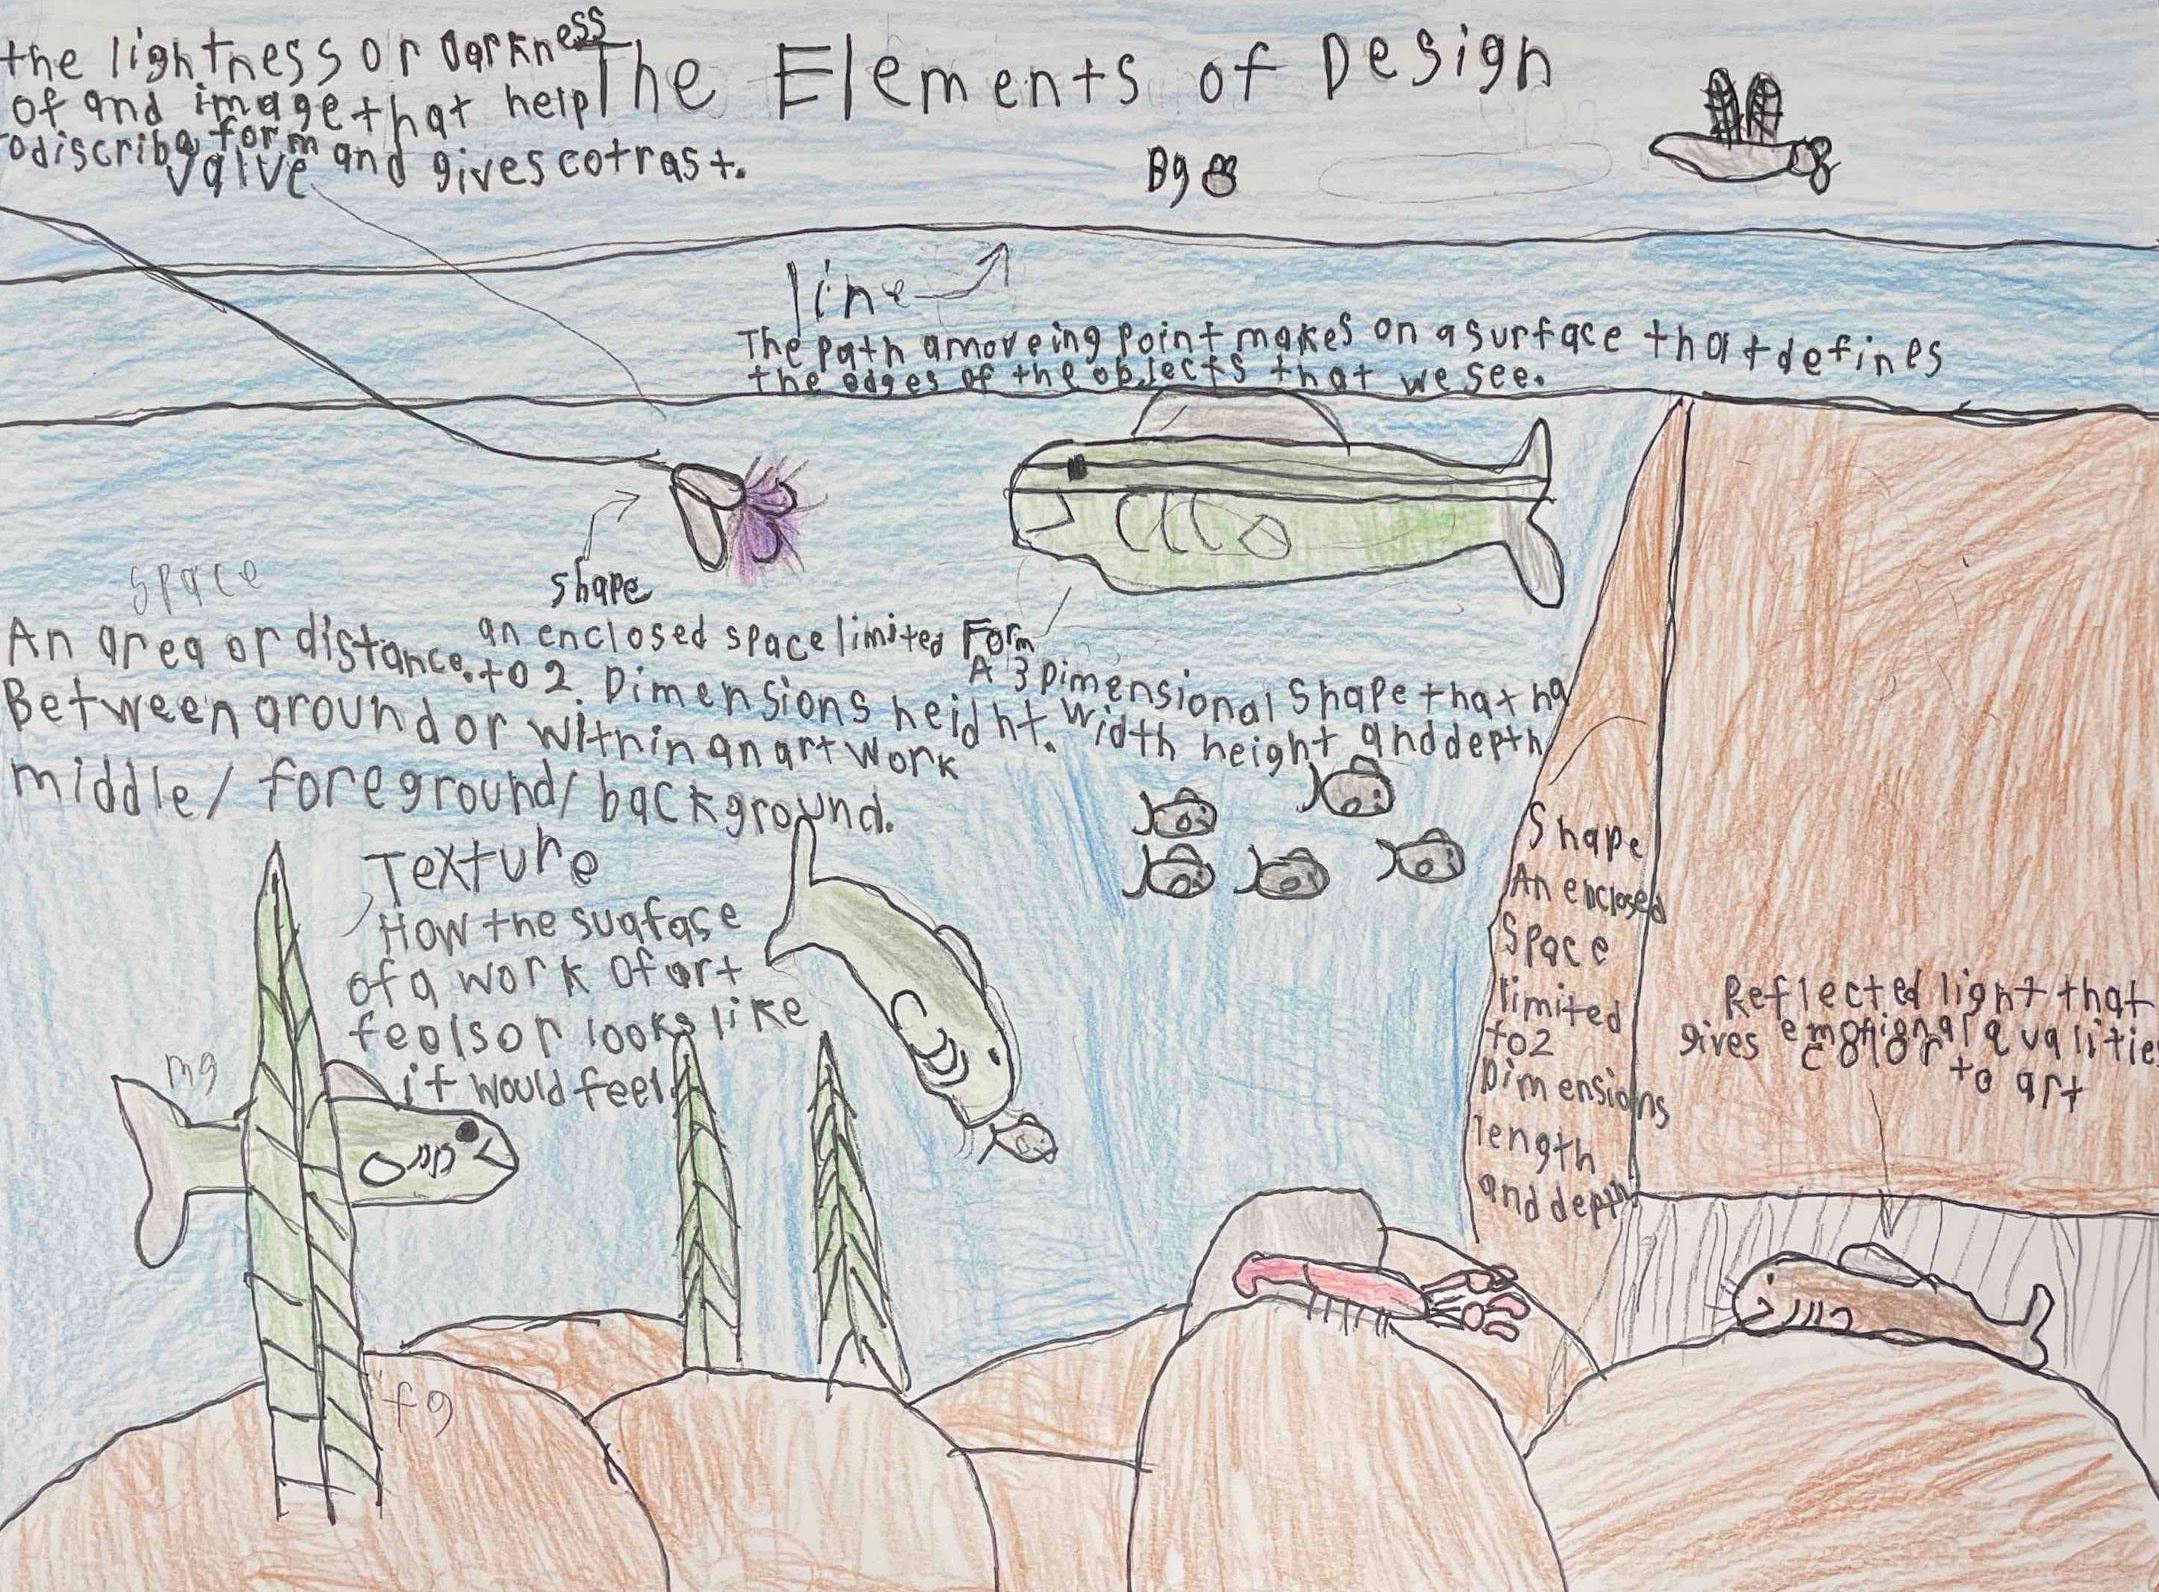 The Elements of Design
the lightness or Darkness
of and image that help
todiscribe form and gives cotrast.
valve
Bg
line
The path a moveing point makes on a surface that defines
the edges of the objects that we see.
space
An area or distance.
Between around or within an art work
middle/ foreground/ background.
shape
an enclosed space limited
to 2 Dimensions heidht.
Form
A 3 Dimensional Shape that ha
width height and depth
Texture
How the suafase
of a work of art
feels or looks like
it would feel
mg
fg
Shape
An enclosed
Space
limited
to 2
Dimensions
length
and depth
Reflected light that
gives emotional qualities
color to art